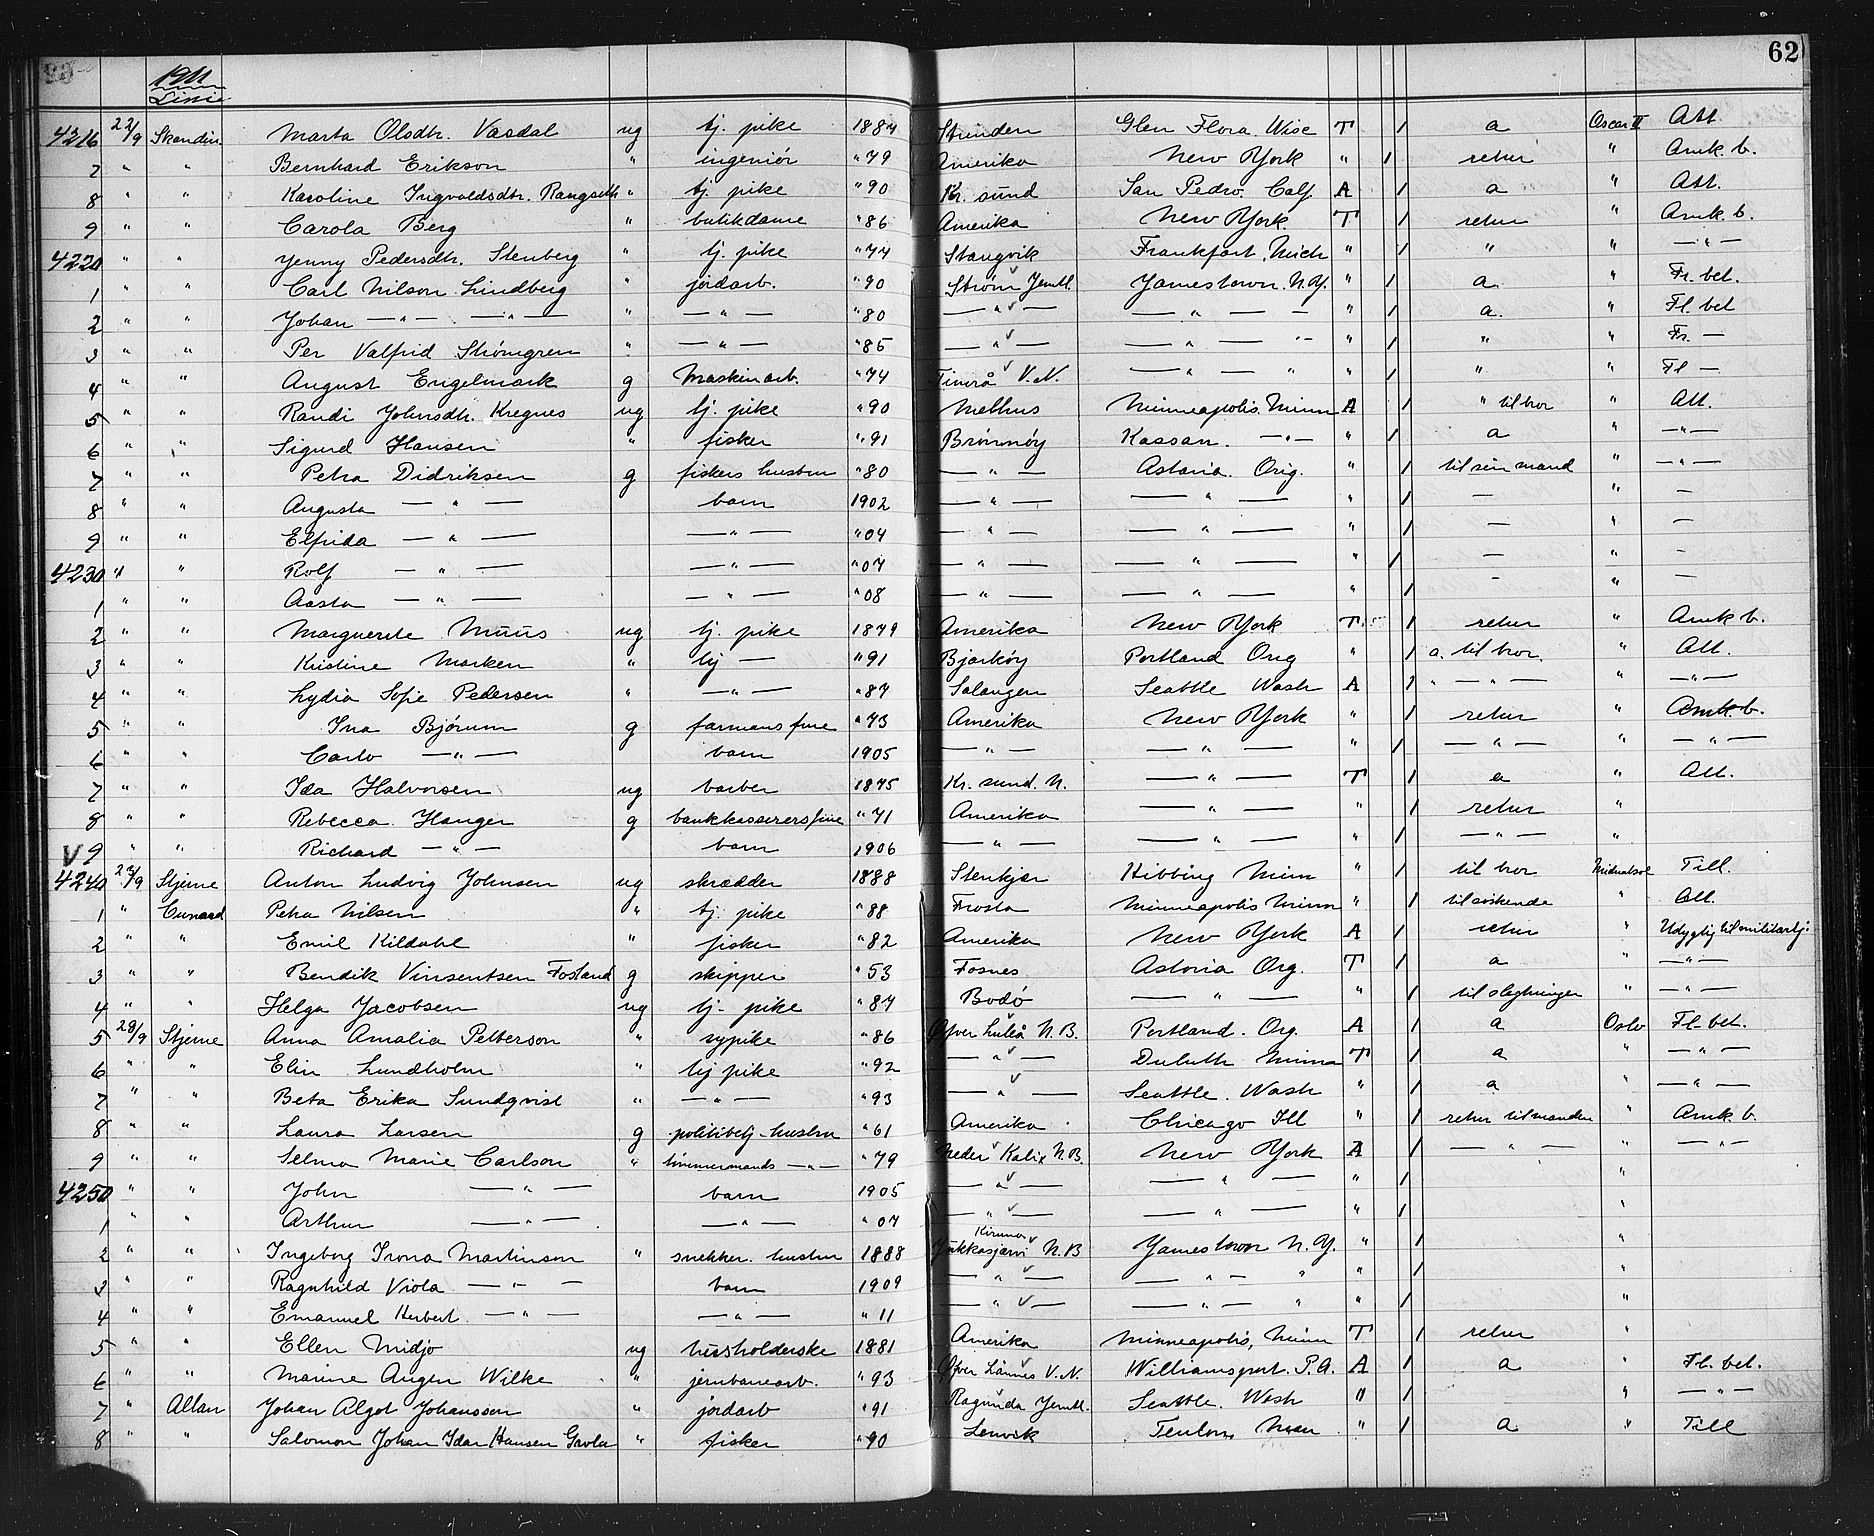 62
1911
Linie
4216 22/9 Skandin. Marta Olsdtr. Vasdal ug tj. pike 1884 Strinden Glen Flora. Wisc T 1 a Oscar II Att.
7 " " Bernhard Erikson " ingeniør "79 Amerika New York " 1 retur " Amk. b.
8 " " Karoline Ingvaldsdtr. Rangseth " tj. pike "90 Kr. sund San Pedro. Calf A 1 a " Att.
9 " " Carola Berg " butikdame "86 Amerika New York. T 1 retur " Amk. b.
4220 " " Jenny Pedersdtr. Stenberg " tj. pike "74 Stangvik Frankfort. Mich " 1 " " — " —
1 " " Carl Nilson Lindberg " jordarb. "90 Strøm Jemtl. Jamestown. N.Y. " 1 a " Fr. bet.
2 " " Johan — " — — " — " — " — "80 — " — — " — — " 1 a. " Fl. bet
3 " " Per Valfrid Strömgren " — " — "85 — " — — " — " " 1 " " Fr. —
4 " " August Engelmark g Maskinarb. "74 Timrå V.N. — " — " " 1 " " Fl —
5 " " Randi Johnsdtr. Kregnes ug tj. pike "90 Melhus Minneapolis. Minn A 1 " til bror " Att.
6 " " Sigurd Hansen " fisker "91 Brønnøy Kassan. — " — " 1 a " — " —
7 " " Petra Didriksen g fiskers hustru "80 — " — Astoria. Orig. " 1 til sin mand " — " —
8 " " Augusta — " — barn 1902 — " — — " — " 1 — " —
9 " " Elfrida — " — — " — "04 — " — — " — " 1 — " —
4230 " " Rolf — " — — " — "07 — " — — " — " 1 — " —
1 " " Aasta — " — — " — "08 — " — — " — " 1 — " —
2 " " Marguerite Muus ug tj. pike 1879 Amerika New York T. 1 retur " Amk b.
3 " " Kristine Marken " tj — "91 Bjarkøy Portland Org " 1 a. til bror. " Att.
4 " " Lydia Sofie Pedersen " — " — "87 Salangen Seattle Wash A 1 " — " — " — " —
5 " " Ina Bjørum g farmans frue "73 Amerika New York " 1 retur " Amk. b.
6 " " Carlo — " — barn 1905 — " — — " — " 1 — " — " — " —
7 " " Ida Halvorsen ug barber 1875 Kr. sund. N. — " — T 1 a " Att.
8 " " Rebecca Hanger g bankkasserersfrue "71 Amerika — " — " 1 retur "
V 9 " " Richard — " — barn 1906 — " — — " — " 1 — " — "
4240 23/9 Stjerne Anton Ludvig Johnsen ug skrædder 1888 Stenkjær Hibbing Minn " 1 til bror Midnatsol Till.
1 " Cunard Petra Nilsen " tj. pike "88 Frosta Minneapolis Minn " 1 til søskende " Att.
2 " " Emil Kildahl " fisker "82 Amerika New York A 1 retur " Udygtig til militærtj.
3 " " Bendik Vinsentsen Fosland g skipper "53 Fosnes Astoria Org. T 1 a " — " —
4 " " Helga Jacobsen ug tj. pike "87 Bodø — " — " 1 til slegtninger " — " —
5 28/9 Stjerne Anna Amalia Petterson " sypike "86 Öfver Luleå N.B. Portland. Org. A 1 a Oslo Fl. bet.
6 " " Elin Lundholm " tj pike "92 — " — Duluth Minna T 1 a " — " —
7 " " Beta Erika Sundqvist " — " — "93 — " — Seattle. Wash " 1 a " — " —
8 " " Laura Larsen g politibetj. hustru "61 Amerika Chicago Ill " 1 retur til manden " Amk b.
9 " " Selma Marie Carlson " tømmermands — " — "79 Neder Kalix N.B. New York A 1 — " — " — " —
4250 " " John — " — barn 1905 — " — — " — " 1 "
1 " " Arthur — " — — " — "07 — " — — " — " 1 "
2 " " Ingeborg Irona Martinson " snekker. hustru 1888 Kiruna Jukkasjärvi N.B Jamestown N.Y. " 1 "
3 " " Ragnhild Viola — " — barn 1909 — " — — " — " " 1 "
4 " " Emanuel Herbert — " — — " — "11 — " — — " — " " 1 "
5 " " Ellen Midjo ug husholderske 1881 Amerika Minneapolis, Minn T 1 retur "
6 " " Marine Augen Wilke " jernbanearb. "93 Öfver Lännes V.N. Williamsport. P.A. A 1 a " Fl. bet.
7 " Allan Johan Algot Johansson " jordarb "91 Ragunda Jemtl. Seattle. Wash " 1 " — " —
8 " " Salomon Johan Idar Hansen Gavla " fisker "90 Lenvik Teulon, Man " 1 a " Till